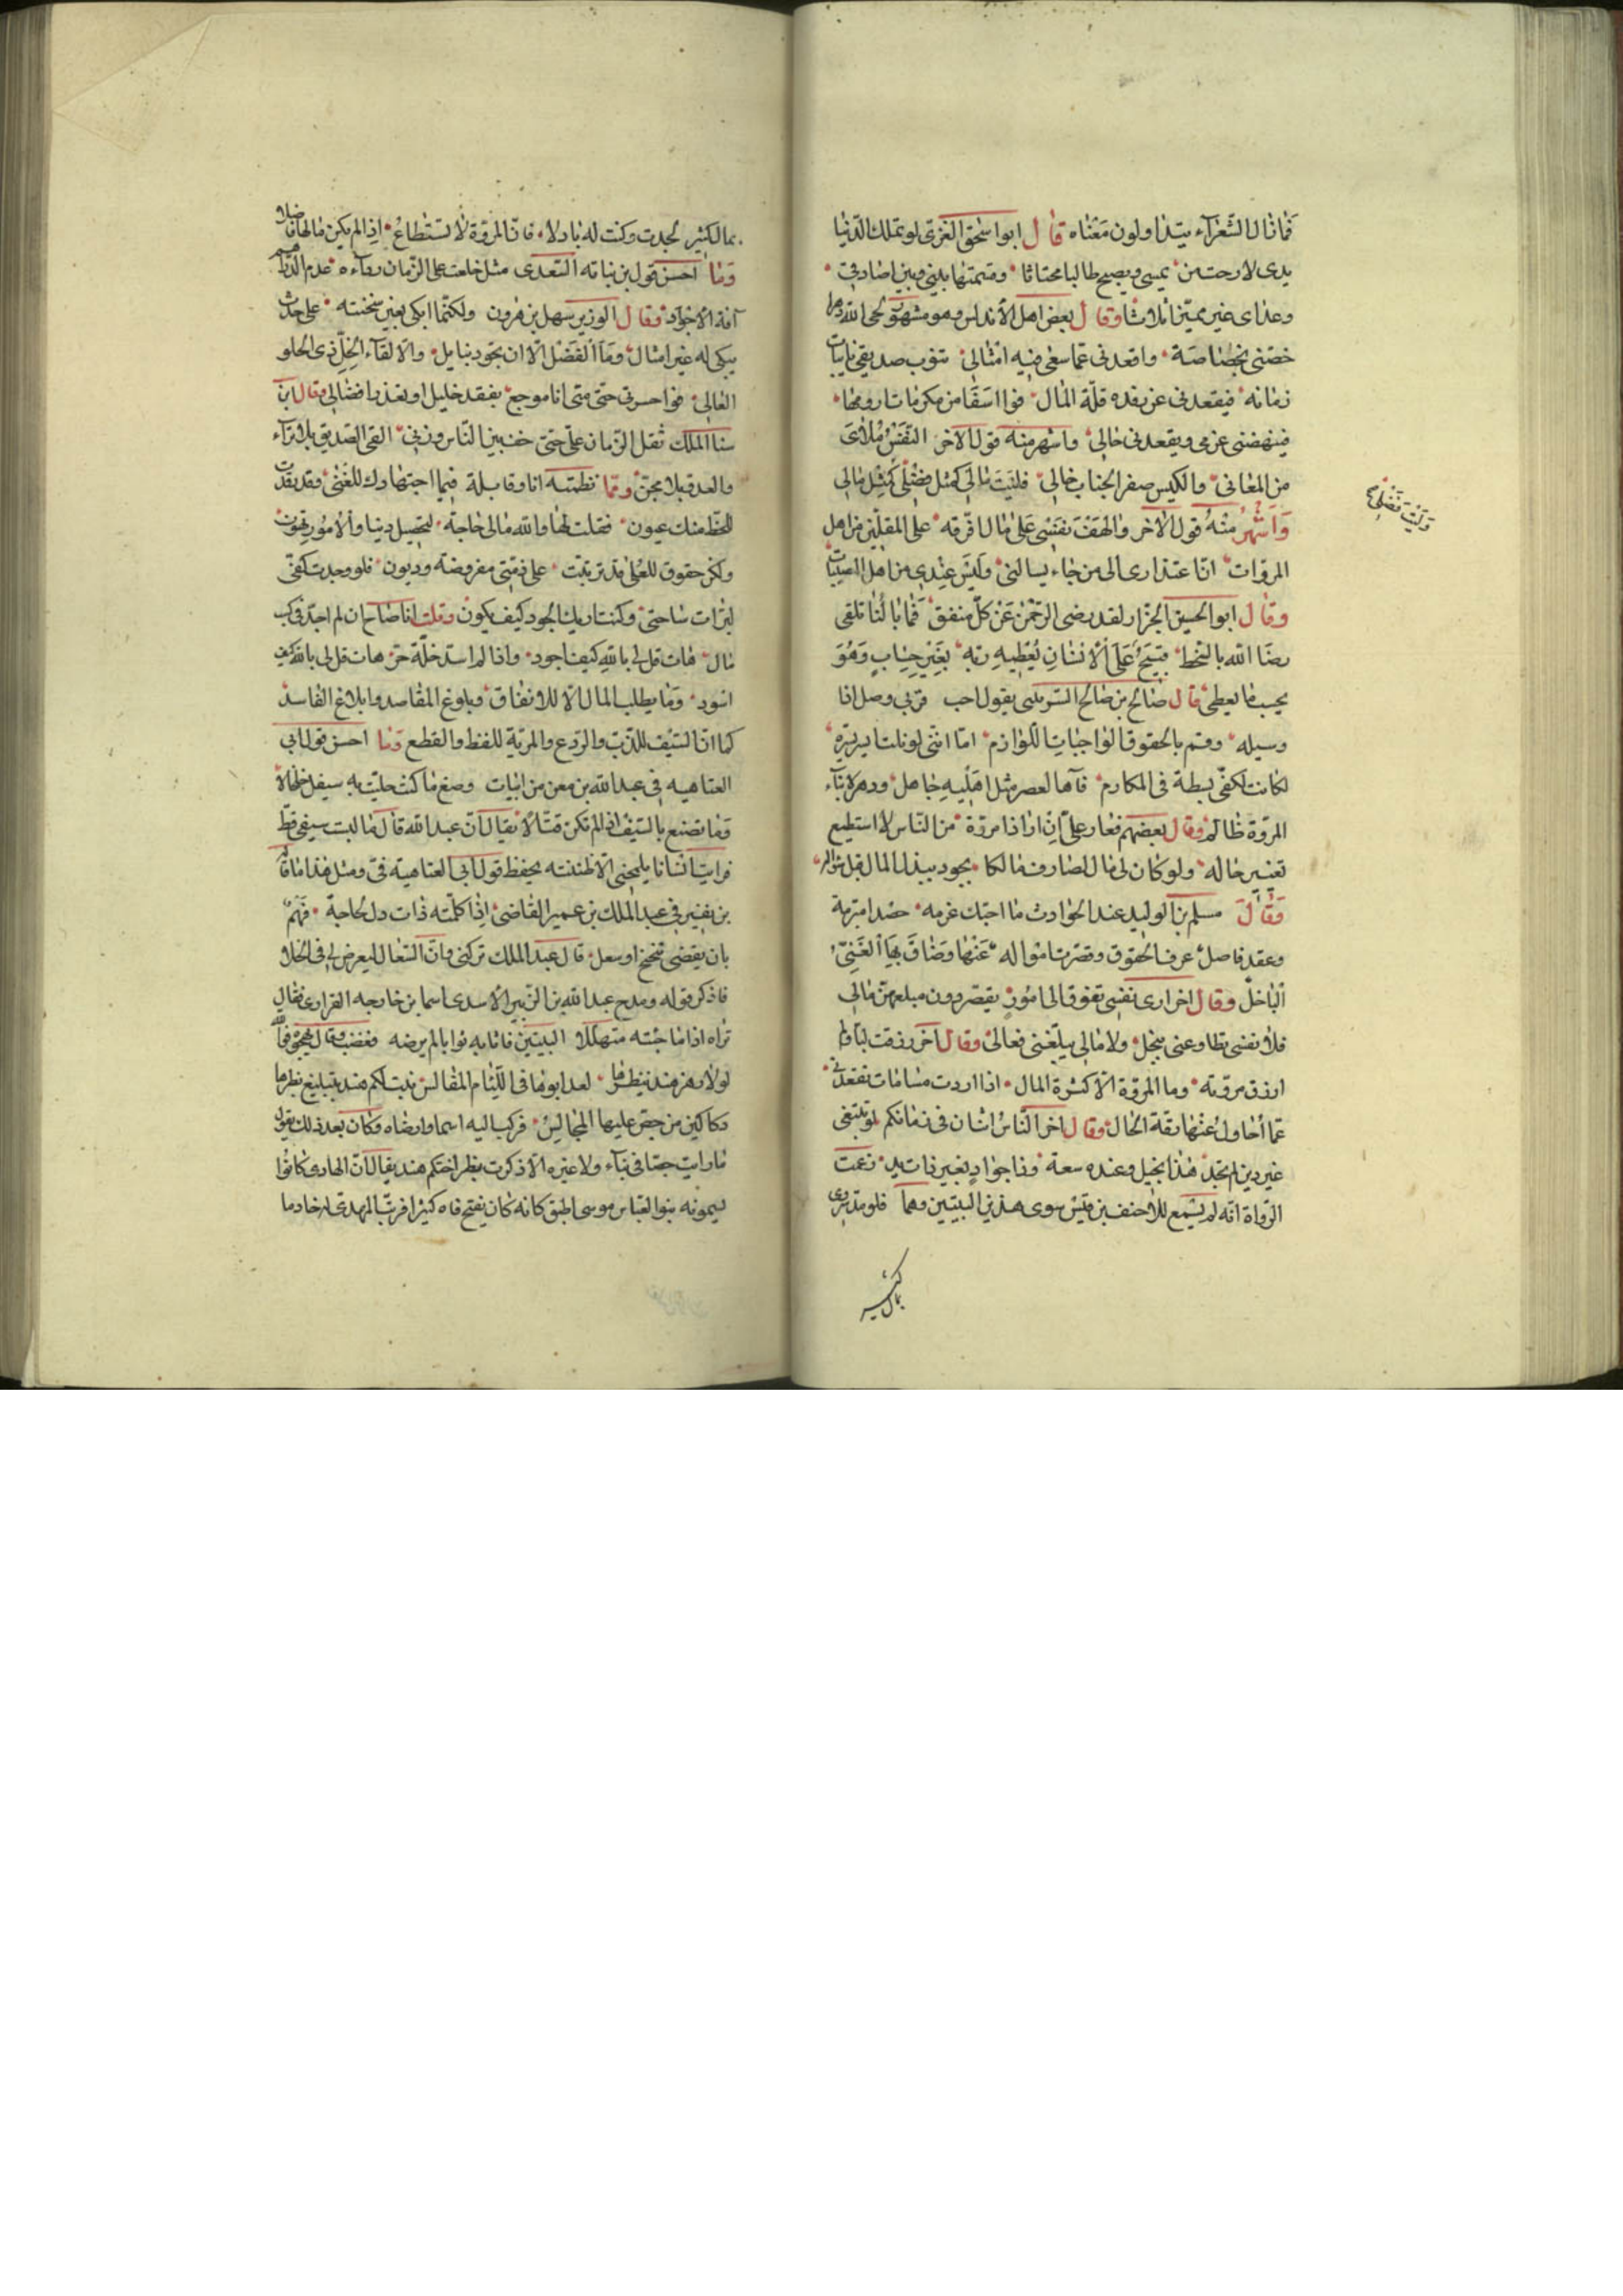 فما نال الشعرآء يتداولون معناه قال ابو اسحق الغزى لو تملك الدنيا
يدى لارحت من يمسى ويصبح طالبا محتاثا وقسمتها بينى وبين اصادقى
وعداى غير مميز اثلاثا وقال بعض اهل الاندلس وهو مشهور لحى الله دهرا
خصنى بخصاصة واقعدنى عما سعى فيه امثالى ينوب صديقى نايبات
زمانه فيقعدنى عن رفده قلة المال فوا اسفا من مكرمات ارومها
فينهضنى عزمى ويقعدنى حالى واشهر منه قول الاخر النفس ملأى
من المعانى والكيس صفر الجناب خالى فليت مالى كمثل فضلى كمثل مالى
وليت فضلى
وَاَشْهَرُ منه قول الاخر والهف نفسى على مال افرقه على المقلين من اهل
المروات ان اعتذارى الى من جاء يسالنى وليس عندى من اهل المصيبات
وقال ابو الحسين الجزار لقد رضى الرحمن عن كل منفق فما بالنا نلقى
رضا الله بالسخط على الانسان يعطيه ربه بغير حساب وهو
يحسب ما يعطى قال صالح بن صالح يقول احب قربى وصل اذا
وسيله وقم بالحقوق الواجبات اللوازم اما اننى لو نلت
لكانت لكفى بسطة فى المكارم فآها لعصر مثل اهليه جاهل ودهر لابناء
المروة ظالم وقال بعضهم فعار على ان ارا ذا مروة من الناس لا استطيع
تغيير حاله ولو كان لى مال لصادف مالكا يجود ببذل المال قبل سواله
وَقَالَ مسلم بن الوليد عند الحوادث ما اجتك عزمه حصدا مبرمة
وعقد فاصل عرف الحقوق وقصرت امواله عنها وضاق بها الغنى
الباخل وقال اخر ارى نفسى تتوق الى امور يقصر دون مبلغهن مالى
فلا نفسى تطاوعنى ببخل ولا مالى يبلغنى فعالى وقال آخر رزقت لبا ولم
ارزق مروته وما المروة الا كثرة المال اذا اردت مساماة تقعدنى
عما احاول عنها رقة الحال وقال اخر الناس اثنان فى زمانكم لو تبتغى
غير ذين لم تجد هذا بخيل وعنده سعة وذا جواد بغير ذات يد زعمت
الرواة انه لم يسمع للاحنف بن قيس سوى هذين البيتين وهما فلو مد سروى
بمال كثير
بمال كثير لجدت وكنت له باذلا فان المروة لا تستطاع اذا لم يكن مالها فاضلا
وما احسن قول بن نباته السعدى مثل خلعت على الزمان رداءه عدم الدراهم
آفة الاجواد وقال الوزير سهل بن هرون ولكنما ابكى بعين سخينه على حدث
يبكى له عين امثالى وما الفضل الا ان تجود بنايل والا لقاء الخل ذى الخلق
العالى فوا حسرتى حتى متى انا موجع بفقد خليل او تعذر افضالى وقال ابن
سنا الملك ثقل الزمان على حتى خف بين الناس وزنى القى الصديق بلا ثراء
والعدو بلا مجن ومما نظمته انا وقابلة فيما اجتهادك للغنى وقد رقدت
للحظ منك عيون فقلت لها والله مالى حاجة لتحصيل دنيا والامور تهون
ولكن حقوق للعلى قد ترتبت على ذمتى مفروضة وديون فلو وجدت كفى
لبرات ساحتى وكنت اريك الجود كيف يكون وقلت انا صاح ان لم اجد فى كسب
مال هات قل لى بالله كيف اجود واذا لم اسد خلة حر هات قل لى بالله كيف
اسود وما يطلب المال الا للانفاق وبلوغ المقاصد وابلاغ المفاسد
كما ان السيف للذب والردع والمرية للفظ والقطع وما احسن قول ابى
العتاهيه فى عبد الله بن معن من ابيات وصغ ما كنت حليت به سيفك خلخالا
وما تصنع بالسيف اذا لم تكن قتالا يقال ان عبد الله قال ما لبست سيفى قط
فرايت انسانا يلمحنى الا ظننته يحفظ قول ابى العتاهية فى ومثل هذا ما قاله
بن فى عبد الملك بن عمير القاضى اذا كلمته ذات دل لحاجة فهم
بان يقضى تنحنح او سعل قال عبد الملك تركنى وان السعال ليعرض لى فى الخلا
فاذكر قوله ومدح عبد الله بن الزبير الاسدى اسما بن خارجه الفزارى فقال
تراه اذا ما جئته متهللا البيتين فاثابه ثوابا لم يرضه فغضب وقال يهجوه
لولا بظر لعد ابوها فى اللئام بنت لكم هند بتبليغ بظرها
دكاكين من جص عليها المجالس فركب اليه اسما وارضاه وكان بعد ذلك يقول
ما رايت جصا فى بناء ولا غيره الا ذكرت بظر اختكم هند يقال ان الهادى كانوا
يسمونه بنو العباس موسى اطبق كانه كان يفتح فاه كثيرا فرتب المهدى له خادما